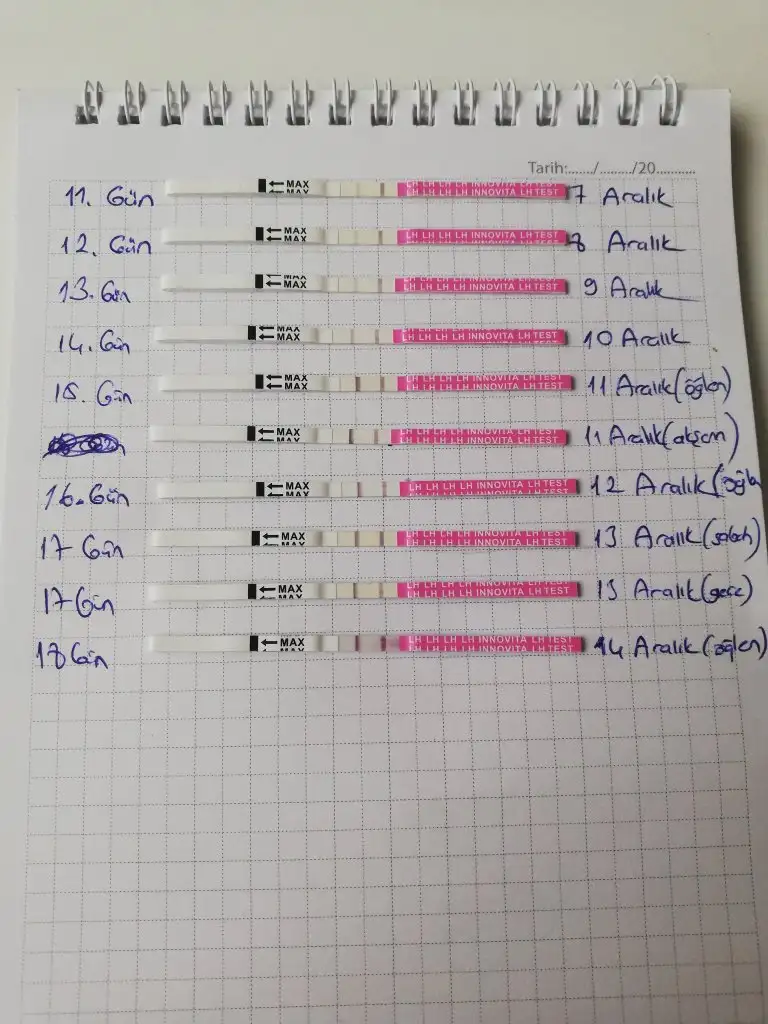 Tarih:....../......../20..........
11. Gün MAX MAX LH LH LH LH INNOVITA LH TEST LH LH LH LH INNOVITA LH TEST 7 Aralık
12. Gün MAX MAX LH LH LH LH INNOVITA LH TEST 8 Aralık
13. Gün MAX MAX LH LH LH LH INNOVITA LH TEST 9 Aralık
14. Gün MAX MAX LH LH LH LH INNOVITA LH TEST 10 Aralık
15. Gün MAX MAX LH LH LH LH INNOVITA LH TEST LH LH LH LH INNOVITA LH TEST 11 Aralık (öğlen)
MAX MAX LH LH LH LH INNOVITA LH TEST LH LH LH LH INNOVITA LH TEST 11 Aralık (akşam)
16. Gün MAX MAX LH LH LH LH INNOVITA LH TEST 12 Aralık
17 Gün MAX MAX LH LH LH LH INNOVITA LH TEST LH LH LH LH INNOVITA LH TEST 13 Aralık (sabah)
17 Gün MAX MAX LH LH LH LH INNOVITA LH TEST LH LH LH LH INNOVITA LH TEST 13 Aralık (gece)
18 Gün MAX MAX LH LH LH LH INNOVITA LH TEST LH LH LH LH INNOVITA LH TEST 14 Aralık (öğlen)